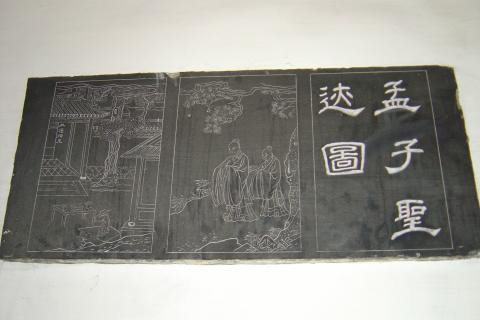 孟子聖
迹圖